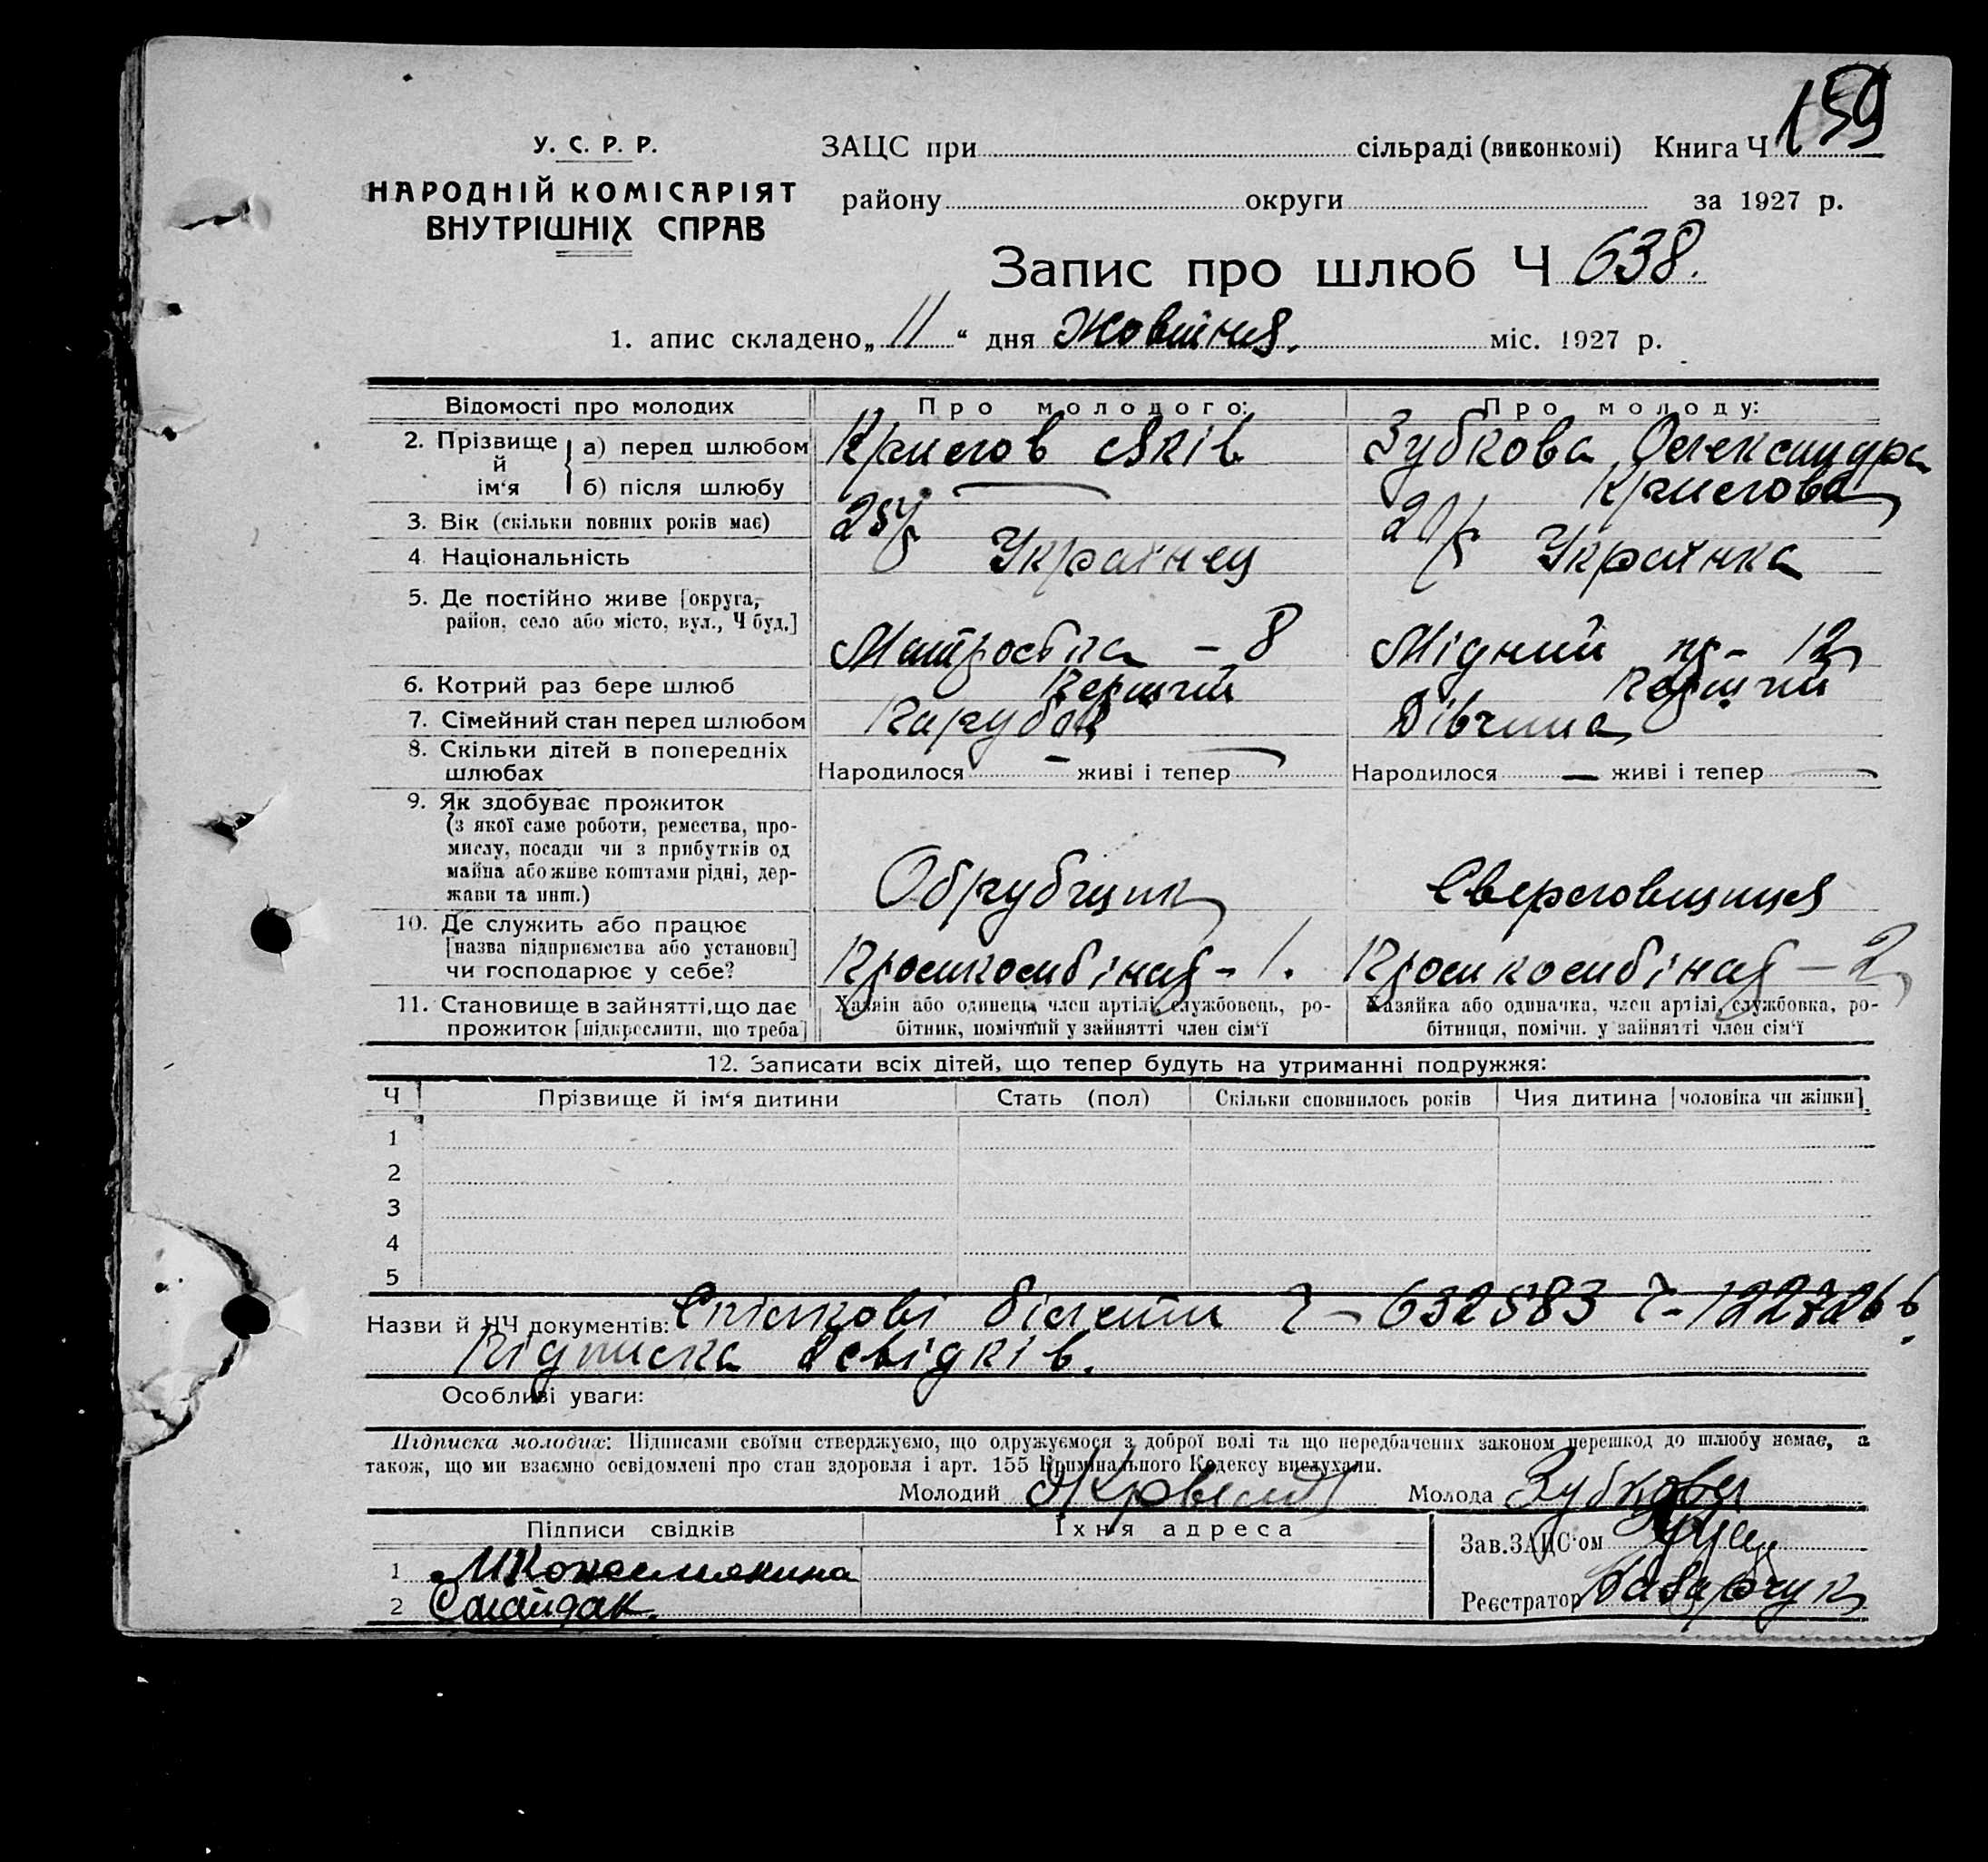 159
У. С. Р. Р.
НАРОДНІЙ КОМІСАРІЯТ
ВНУТРІШНІХ СПРАВ
ЗАЦС при сільраді (виконкомі) Книга Ч
району округи за 1927 р.
Запис про шлюб Ч 638.
1. апис складено „11“ дня Жовтня. міс. 1927 р.
Відомості про молодих Про молодого: Про молоду:
2. Прізвище й ім'я а) перед шлюбом Яків Зубкова Олександра
б) після шлюбу —
3. Вік (скільки повних років має)
4 Національність Українец Українка
5. Де постійно живе [округа, район, село або місто, вул., Ч буд.] – 8 Мідний – 12
6. Котрий раз бере шлюб Перший Перший
7. Сімейний стан перед шлюбом Парубок Дівчина
8. Скільки дітей в попередніх шлюбах Народилося — живі і тепер — Народилося — живі і тепер —
9. Як здобуває прожиток
(з якої саме роботи, ремества, про-
мислу, посади чи з прибутків од
майна або живе коштами рідні, дер-
жави та инш.) Обрубщик Сверловщиця
10. Де служить або працює
[назва підприємства або установи]
чи господарює у себе? Промкомбінат – 1. Промкомбінат – 2
11. Становище в зайнятті, що дає
прожиток [підкреслити, що треба]
Хазяїн або одинець, член артілі, службовець, ро-
бітник, помічний у зайнятті член сім'ї
Хазяйка або одиначка, член артілі, службовка, ро-
бітниця, помічн. у зайнятті член сім'ї
12. Записати всіх дітей, що тепер будуть на утриманні подружжя:
Ч Прізвище й ім'я дитини Стать (пол) Скільки сповнилось років Чия дитина [чоловіка чи жінки]
1
2
3
4
5
Назви й ЧЧ документів: Спілкові білети Ч – 632583 Ч –
Підписка свідків.
Особливі уваги:
Підписка молодих: Підписами своїми стверджуємо, що одружуємося з доброї волі та що передбачених законом перешкод до шлюбу немає, а
також, що ми взаємно освідомлені про стан здоровля і арт. 155 Кримінального Кодексу вислухали.
Молодий Молода Зубкова
Підписи свідків Їхня адреса Зав. ЗАЦС'ом
1
2 Реєстратор